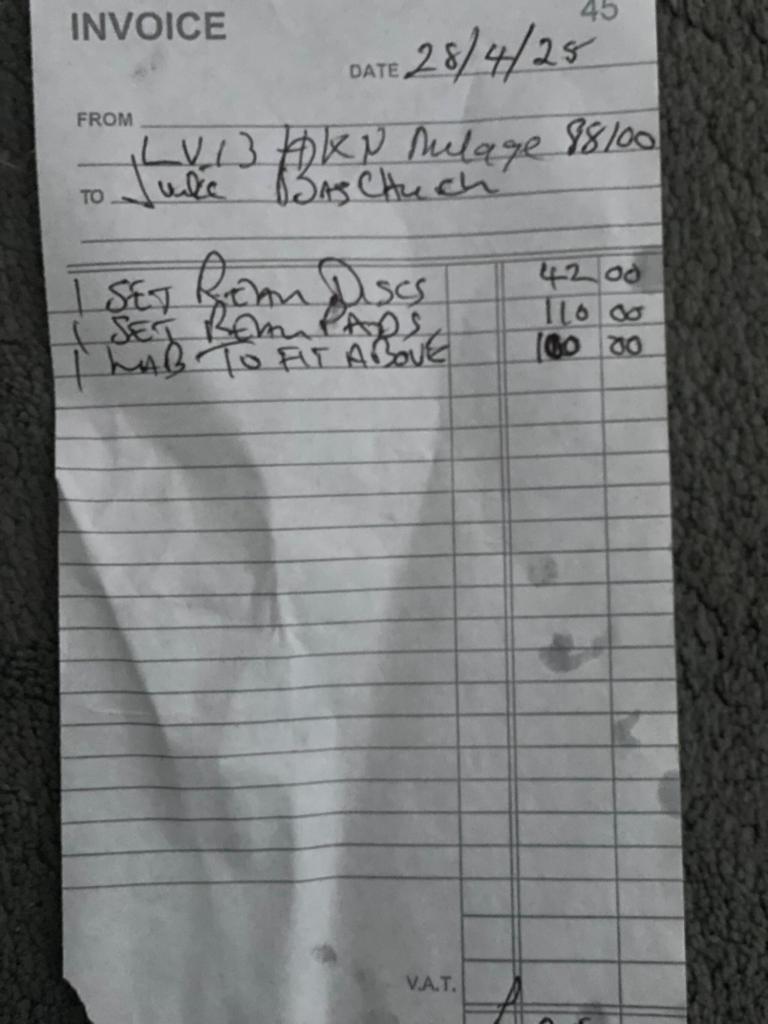 45
INVOICE
DATE 28/4/25
FROM
LV13 Milage 88100
TO Juke
1 SET REAR DISCS 42 00
1 SET REAR PADS 110 00
1 LAB TO FIT ABOVE 100 00
V.A.T.